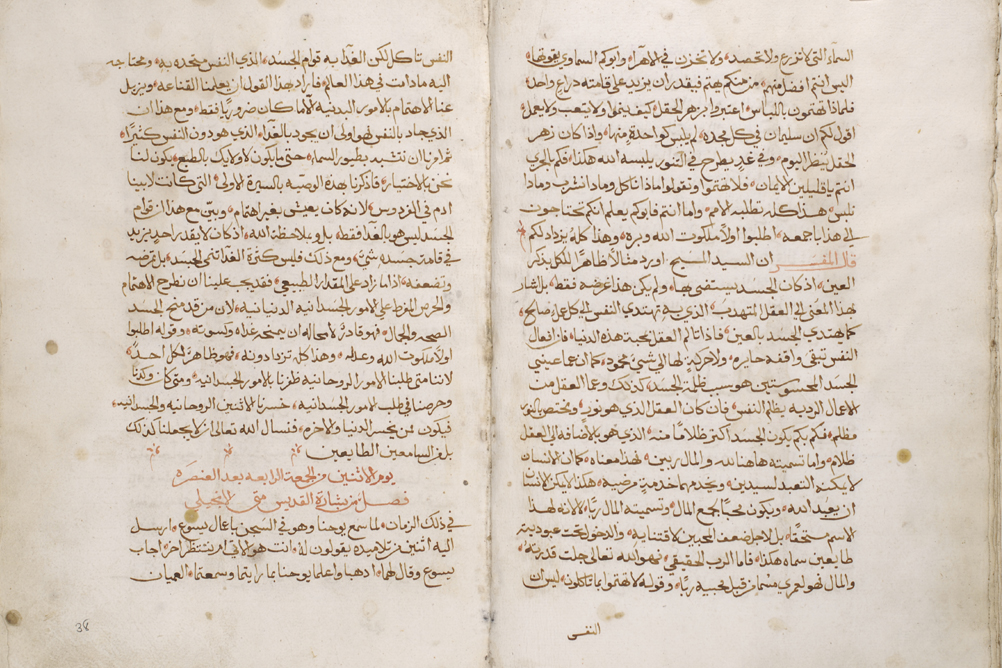 السماء التى لا تزرع ولا تحصد ولا تخزن فى الاهرآ وابوكم السماوى يقوتها
اليس انتم افضل منهم من منكم يهتم فيقدر ان يزيد على قامته ذراع واحد
فلماذا تهتمون باللباس اعتبروا بزهر الحقل كيف ينموا ولا يتعب ولا يعمل
اقول لكم ان سليمان فى كل مجده لم يلبس كواحدة منها واذا كان زهر
الحقل ينظر اليوم وفى غدٍ يطرح فى التنور يلبسه الله هكذا فكم بالحرى
انتم يا قليلين الايمان فلا تهتموا وتقولوا ماذا ناكل وماذا نشرب وماذا
نلبس هذا كله تطلبه الامم واما انتم فابوكم يعلم انكم تحتاجون
الى هذا باجمعه اطلبوا اولاً ملكوت الله وبره وهذا كله يزداد لكم
قال المفسر ان السيد المسيح اورد مثالاً ظاهرا للكل بذكر
العين اذ كان الجسد يستضى بها ولم يكن هذا غرضه فقط بل اشار
بهذا المعنى الى العقل المتهدب الذى به تهتدى النفس الى كل عمل صالح
كما يهتدى الجسد بالعين فاذا تالم العقل بمحبة هذه الدنيا فان افعال
النفس تبقى واقفه حايره ولا حركة لها الى شى محمود كما ان عما عينى
الجسد المحسوستين هو سبب ظلمة الجسد كذلك وعما العقل من
الاعمال الرديه يظلم النفس فان كان العقل الذى هو نور
مظلم فكم بكم يكون الجسد اكثر ظلاماً منه الذى هو بالاضافه الى العقل
ظلام واما تسميته هاهنا لله والمال ربين فهذا معناه كما ان الانسان
لا يمكنه التعبد لسيدين ويخدمهما خدمة مرضيه هكذا لا يمكن لانسان
ان يعبد الله ويكون محبّا لجمع المال وتسميته المال ربّا لا لانه لهذا
الاسم مستحقّا بل لاجل ضعف المحبين لاقتنايه والدخول تحت عبوديته
طايعين سماه هكذا فاما الرب الحقيقى فهو الله تعالى جلت قدرته
والمال فهو لعمرى مسما من قبل محبيه ربّا وقوله لا تهتموا بما تاكلون ليس ان
النفس
النفس تاكل لكن الغذا به قوام الجسد الذى النفس متحده به ومحتاجه
اليه ما دامت فى هذا العالم فاراد بهذا القول ان يعلمنا القناعه ويزيل
عنا الاهتمام بالامور البدنيه الا ما كان ضروريّا فقط ومع هذا ان
الذى جاد بالنفس لهو اولى ان يجود بالغذا الذى هو دون النفس كثيرا
ثم امرنا ان نتشبه بطيور السماء حتى ما يكون لاوليك بالطبع يكون لنا
نحن بالاختيار فاذكرنا بهذه الوصيه بالسيرة الاولى التى كانت لابينا
ادم فى الفردوس لانه كان يعيش بغير اهتمام وبين مع هذا ان قوام
الجسد ليس هو بالغذا فقط بل وبملاحظة الله اذ كان لا يقدر احد يزيد
فى قامة جسده شئ ومع ذلك فليس كثرة الغذا تنمى الجسد بل تمرضه
وتضعفه اذا ما زاد على المقدار الطبيعى فقد يجب علينا ان نطرح الاهتمام
والحرص المفرط على الامور الجسدانيه الدنيانيه لان من قد منح الجسد
الصحه والجمال فهو قادر لا محاله ان يمنحه غذاه وكسوته وقوله اطلبوا
اولاً ملكوت الله وعدله وهذا كله تزدادونه فهو ظاهر لكل احد
لاننا متى طلبنا الامور الروحانيه ظفرنا بالامور الجسدانيه ومتى كان وكدنا
وحرصنا فى طلب الامور الجسدانيه خسرنا الاثنين الروحانيه والجسدانيه
فيكون ممن يخسر الدنيا والاخره فنسال الله تعالى ان لا يجعلنا كذلك
بل من السامعين الطايعين
يوم الاثنين من الجمعة الرابعه بعد العنصره
فصل من بشارة القديس متى الانجيلى
فى ذلك الزمان لما سمع يوحنا وهو فى السجن باعمال يسوع ارسل
اليه اثنين من تلاميذه يقولون له انت هو الاتى ام ننتظر اخر اجاب
يسوع وقال لهما اذهبا واعلما يوحنا بما رايتما وسمعتما العميان
38